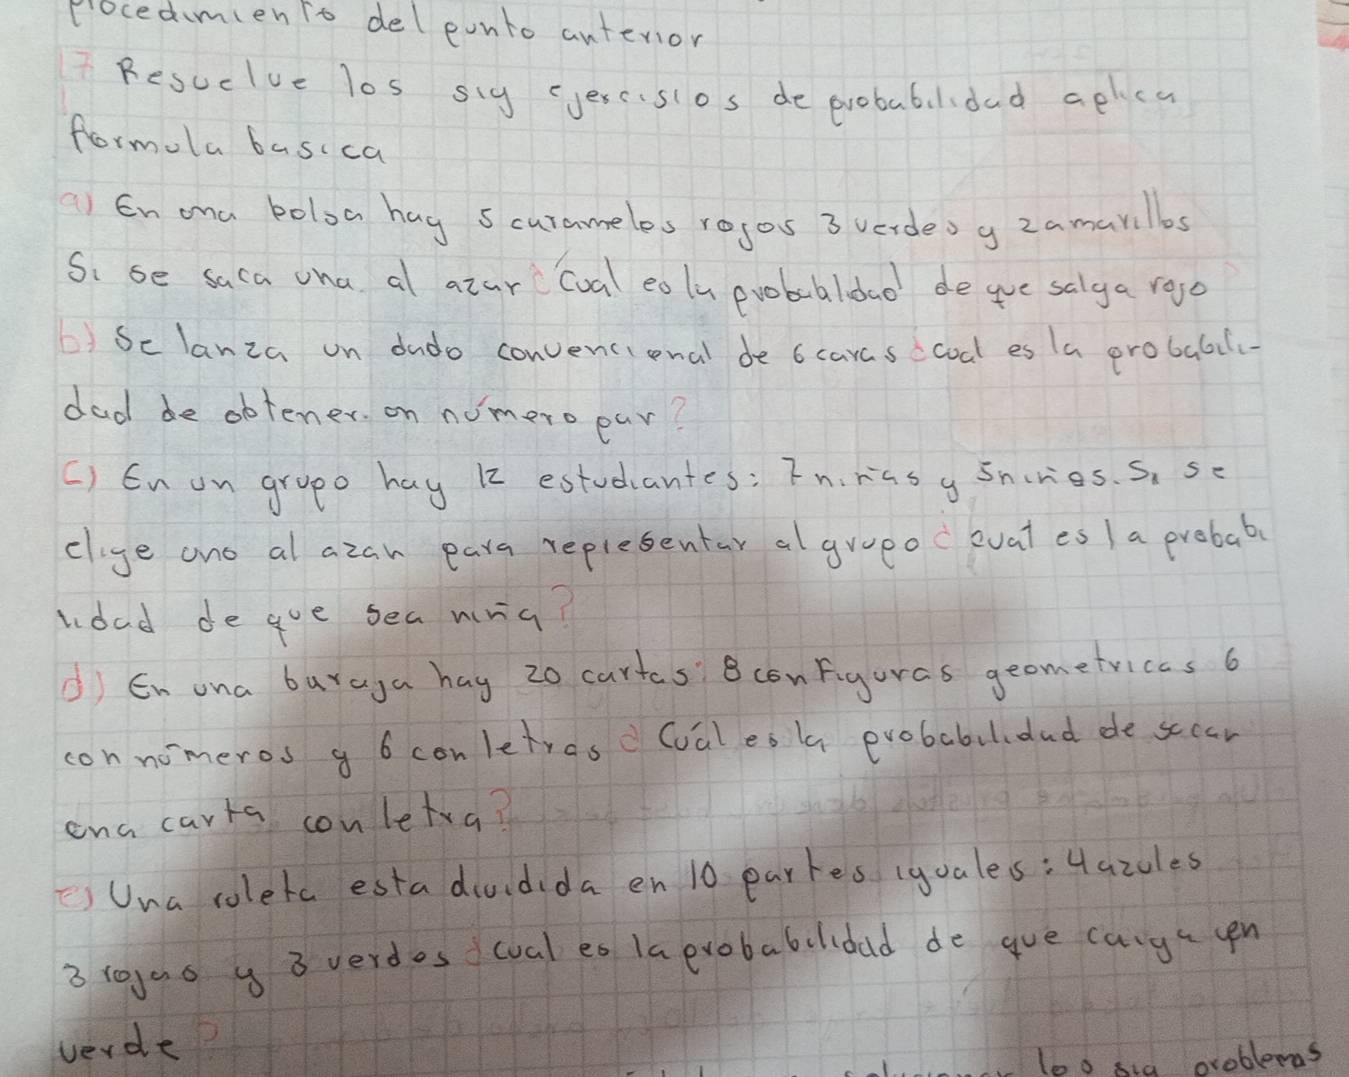 procedimiento del punto anterior
17 Resuelve los sig ejercisios de probabilidad aplica
formula basica
a) En una bolsa hay 5 caramelos rojos 3 verdes y 2 amarillos
Si se saca una al azar ¿Cual es la probabilidad de que salga rojo
b) Se lanza un dado convencional de 6 caras ¿cual es la probabili-
dad de obtener un número par?
c) En un grupo hay 12 estudiantes: 7 niñas y 5 niños. Si se
elige uno al azar para representar al grupo ¿cual es la probabi
lidad de que sea niña?
d) En una baraja hay 20 cartas: 8 con figuras geometricas 6
con números y 6 con letras ¿Cuál es la probabilidad de sacar
una carta con letra?
e) Una ruleta esta dividida en 10 partes iguales: 4 azules
3 rojas y 3 verdes ¿cual es la probabilidad de que caiga en
verde?
los sig problemas